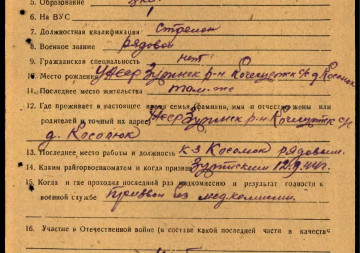 5. Образование
6. На ВУС
7. Должностная квалификация Стрелок
8. Военное звание рядовой
9. Гражданская специальность нет
10. Место рождения УАССР р-н д.
11. Последнее место жительства там-же
12. Где проживает в настоящее время семья (фамилия, имя и отчество жены или
родителей и точный их адрес) УАССР р-н
д. Косолюк
13. Последнее место работы и должность к-з Косолюк рядовым
14. Каким райгорвоенкоматом и когда призван
15. Когда и где проходил последний раз медкомиссию и результат годности к
военной службе призван без медкомиссии.
16. Участие в Отечественной войне (в составе какой последней части в качестве